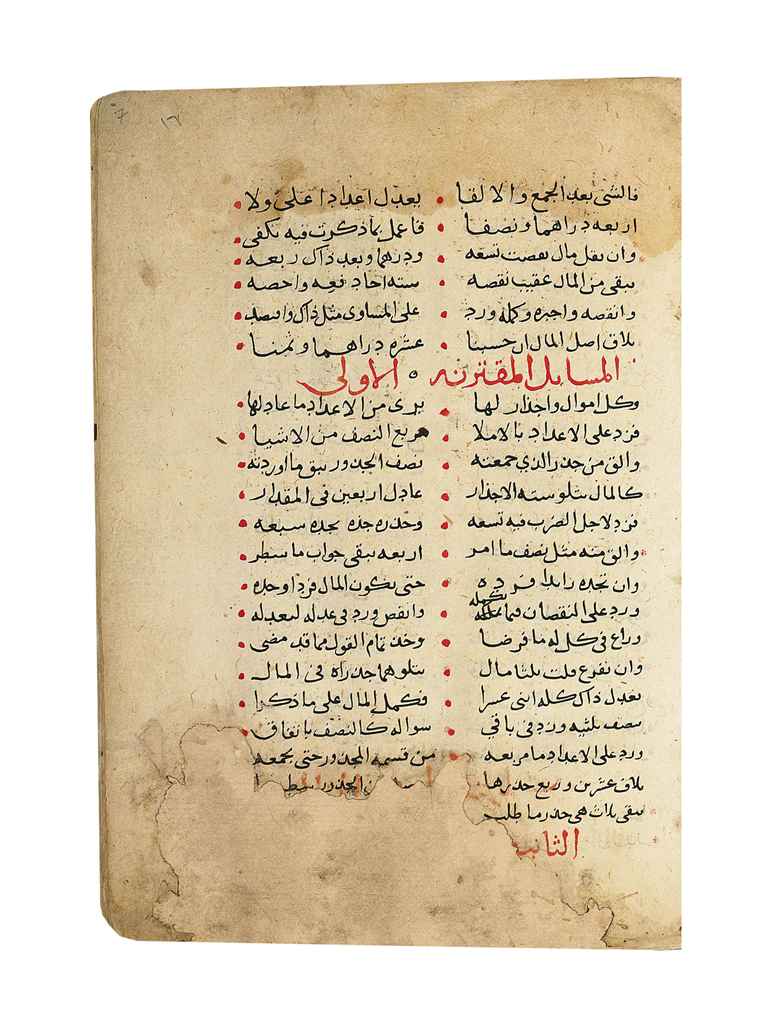 7 ١٦
فالشي بعد الجمع والالقا • يعدل اعدادا على ولا •
اربعه دراهما ونصفا • فاعمل بما ذكرت فيه تكفى •
وان يقل مال نقصت تسعه • ودرهما وبعد ذاك ربعه •
يبقى من المال عقيب نقصه • سته احاد فعه واحصه •
وانقصه واجبره وكمله ورد • على المساوى مثل ذاك واقتصد •
يلاق اصل المال ان حسبنا • عشره دراهما وثمنا •
المسايل المقترنه ه الاولى
وكل اموال واجذار لها • يرى من الاعداد ما عادلها •
فزد على الاعداد بالاملا • مربع النصف من الاشيا •
والق من جذر الذي جمعته • نصف الجذور يبق ما اردته •
كالمال يتلو سته الاجذار • عادل اربعين فى المقدار •
فزد لاجل الضرب فيه تسعه • وخذ جذره تجده سبعه •
والق منه مثل نصف ما امر • اربعه يبقى جواب ما سطر •
وان تجده زايدا فرده • حتى يكون المال فردا وحده •
ورد على النقصان فما تكمله • وانقص ورد فى عدله لتعدله •
وراع فى كل له ما فرضا • وخذ تمام القول مما قد مضى •
وان تفرع قلت ثلثا مال • يتلوهما جذراه فى المال •
يعدل ذاك كله اثنى عشرا • فكمل المال على ما ذكرا •
بنصف ثلثيه وزد فى باقي • سواله كالنصف باتفاق •
وزد على الاعداد ما مربعه • من قسمه الجذور حتى تجمعه
يلاق عشرين وربع جذرها • الجذور
يبقى ثلاث هى جذر ما طلب
الثانيه